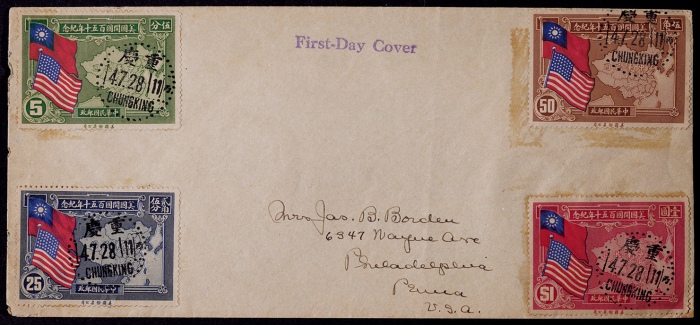 伍分
美國開國百五十年紀念
重慶
14.7.28 11
CHUNGKING
5
中華民國郵政
First-Day Cover
伍角
美國開國百五十年紀念
重慶
14.7.28 11
CHUNGKING
50
中華民國郵政
貳角伍分
美國開國百五十年紀念
重慶
14.7.28 11
CHUNGKING
25
中華民國郵政
Mrs Jas. B. Borden
6347 Wayne Ave
Philadelphia
Penna
U.S.A.
壹圓
美國開國百五十年紀念
重慶
14.7.28 11
CHUNGKING
$1
中華民國郵政